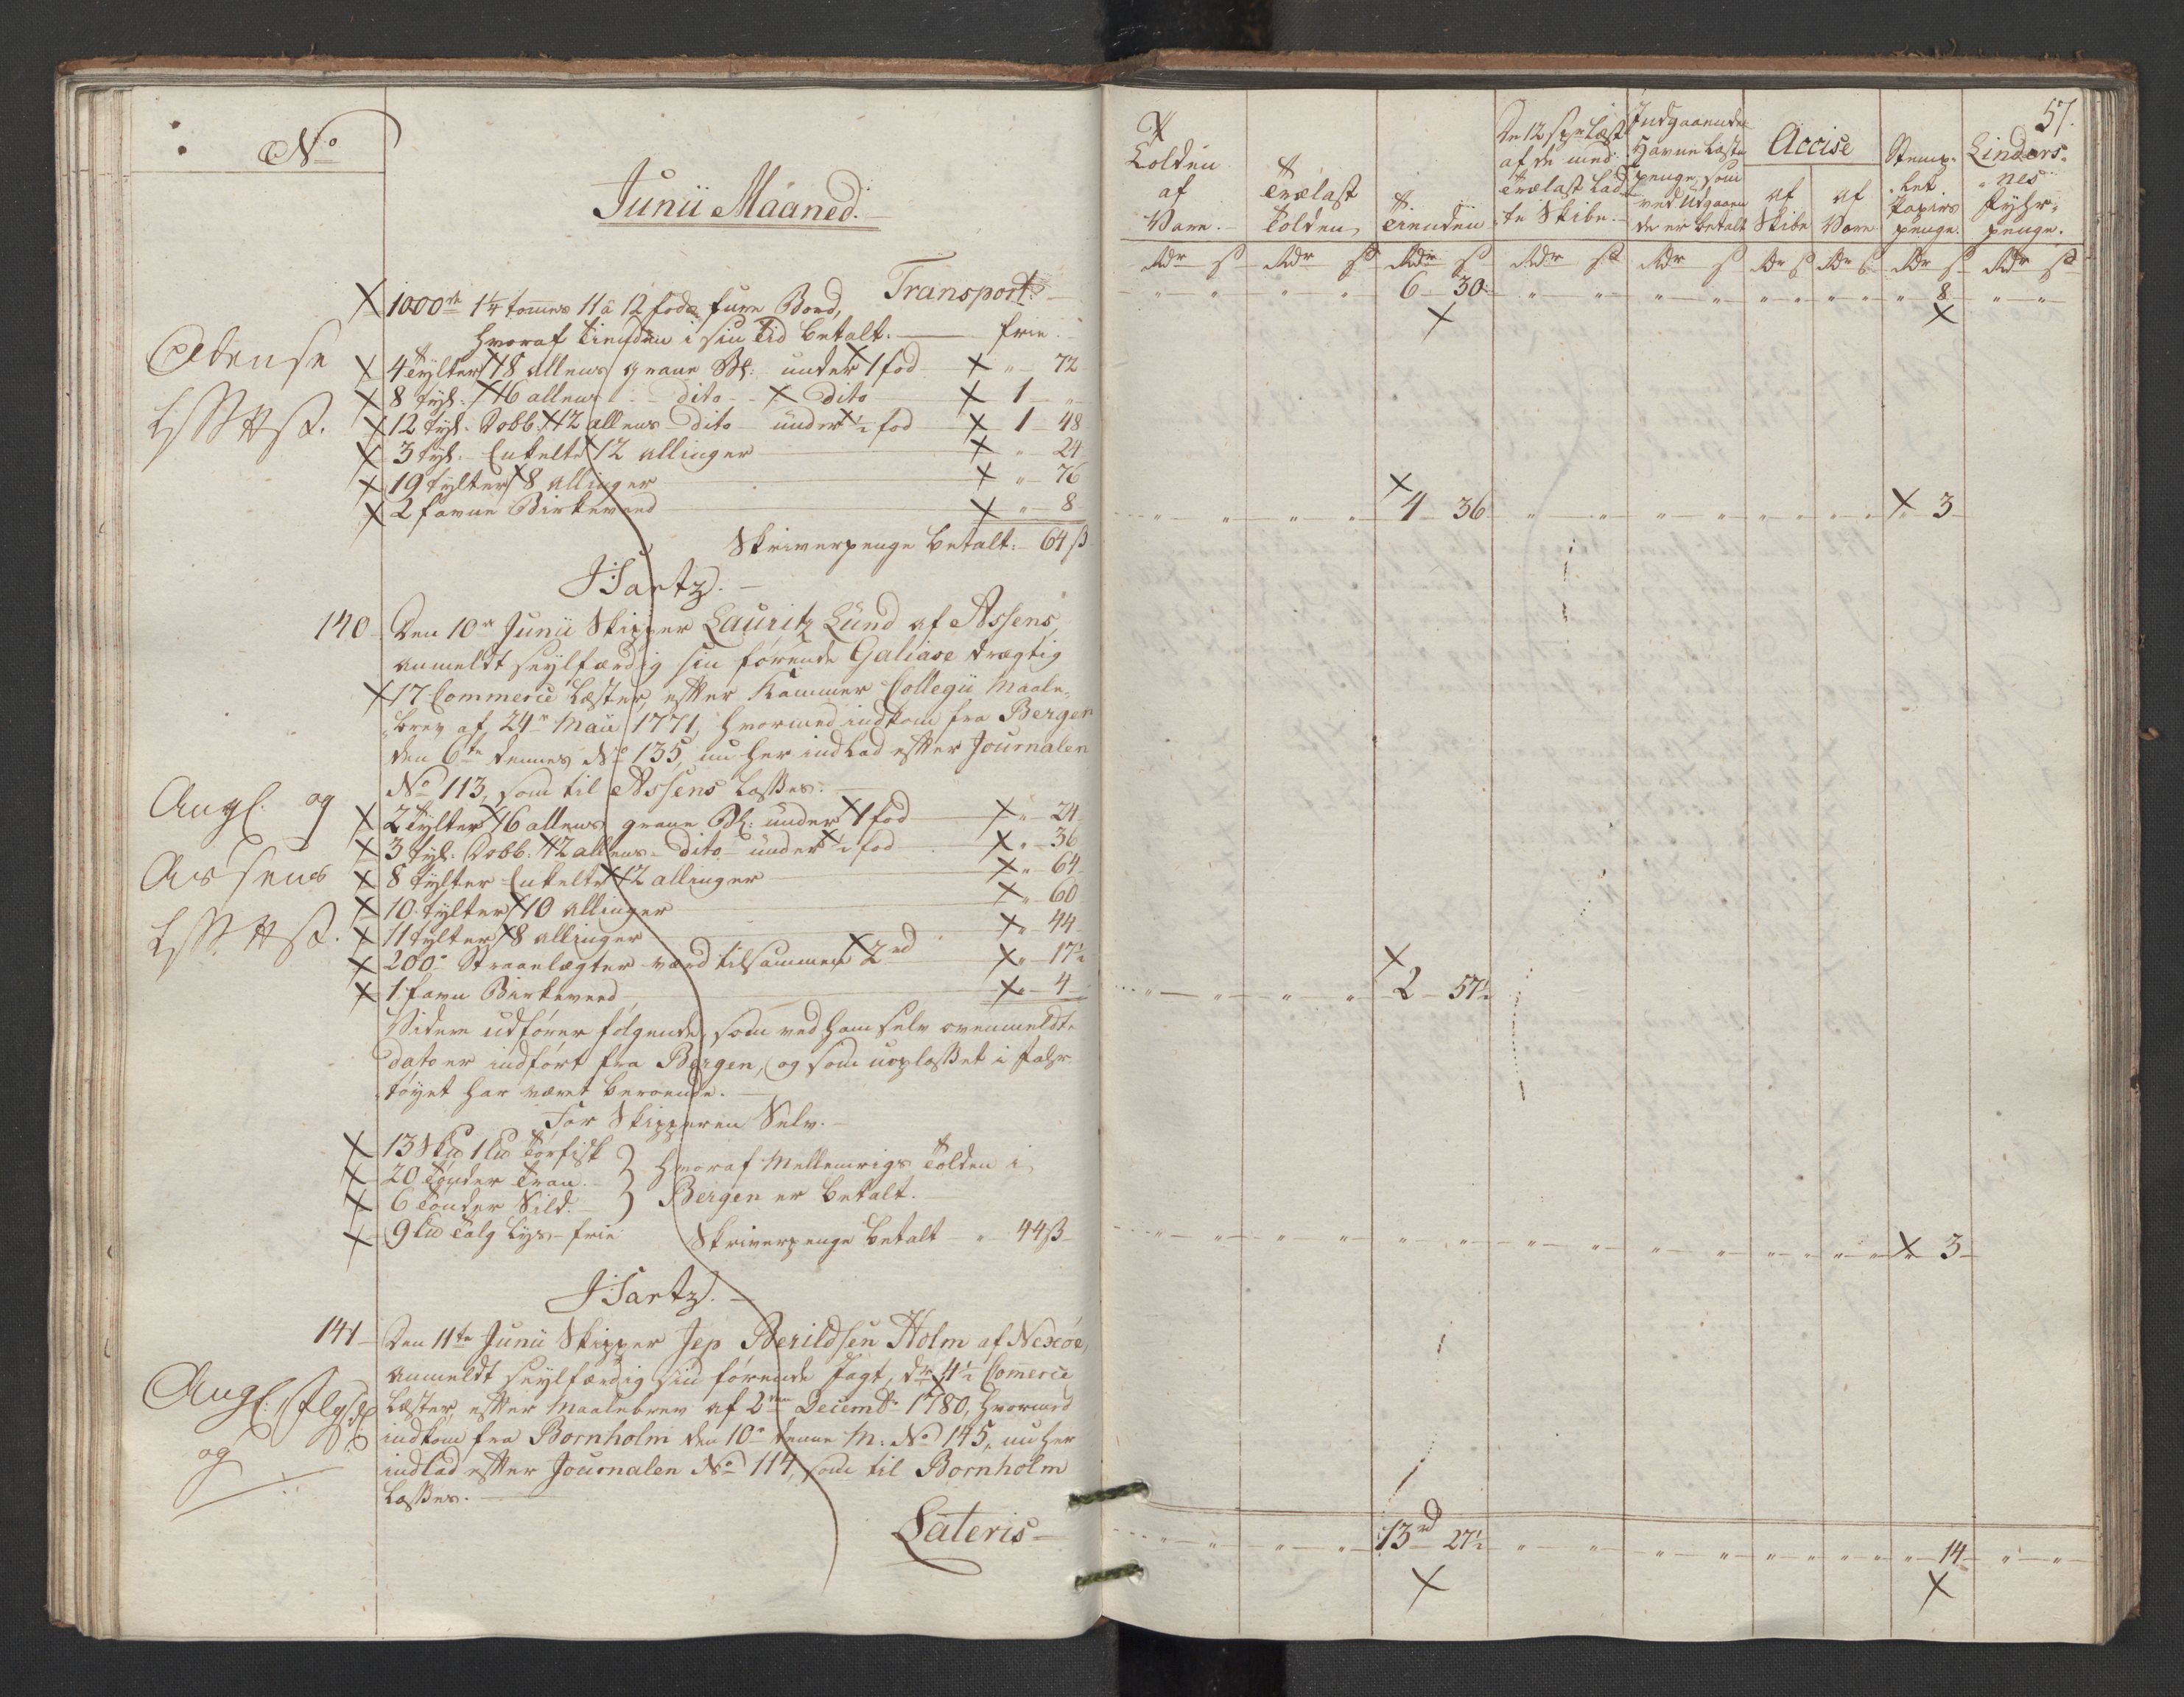 No
Junii Maaned.
Transport.
1000de 1¼ tommes 11 á 12 fods furre Bord,
hvoraf Tienden i sin Tid betalt. frie
Odense
4 Tylter 18 allens grane Bl: under 1 fod " 72
8 Tyl: 16 allens dito dito 1 "
12 Tyl. Dobb: 12 allens dito under ½ fod 1 48
3 Tyl. Enkelte 12 allinger " 24
19 Tylter 8 allinger " 76
2 favne Birkeveed " 8
Skriverpenge betalt: 64 ß
Hartz.
140 Den 10de Junii Skipper Lauritz Lund af Assens,
anmeldt seylfærdig sin førende Galiase drægtig
17 Commerce Læster, efter Kammer Collegii Maale-
brev af 24de Maii 1771, hvormed indkom fra Bergen
den 6te dennes No 135, nu her indlad efter Journalen
No 113, som til Assens losses.
Angl. og
Assens
2 Tylter 16 allens grane Bl: under 1 fod " 24
3 Tyl: Dobb: 12 allens dito under ½ fod " 36
8 Tylter Enkelte 12 allinger " 64
10 Tylter 10 allinger " 60
11 Tylter 8 allinger " 44
200de Straaelægter værd tilsammen 2 rd " 17½
1 favn Birkeveed " 4
Videre udfører følgende, som ved ham selv ovenmeldte
dato er indført fra Bergen, og som uoplosset i Fahr-
tøyet har været beroende.
For Skipperen Selv.
13 Skd 1 Ld Tørfisk
20 Tønder Tran.
6 Tønder Sild.
hvoraf Mellemrigs Tolden i
Bergen er betalt.
9 Ld Talg Lys frie Skriverpenge betalt " 44 ß
Hartz.
141 Den 11te Junii Skipper Jep Berildsen Holm af Nexøe,
anmeldt seylfærdig sin førende Jagt, dr. 4½ Commerce
Læster, efter Maalebrev af 2den Decembr 1780, hvormed
indkom fra Bornholm den 10de denne M: No 145, nu her
indlad efter Journalen No 114, som til Bornholm
losses.
Angl:
og
Lateris
57.
Tolden af Vare.
Trælast Tolden
Tienden
De 12 sk pr Læst af de med Trælast Ladte Skibe.
Indgaaende Havne Læste penge, som ved Udgaaende er betalt
Accise
af Skibe
af Vare
Stemp-let Papirs penge.
Linders-nes Fyhr-penge.
Rdr ß Rdr ß Rdr ß Rdr ß Rdr ß Rdr ß Rdr ß Rdr ß Rdr ß
6 30 8
4 36 3
2 57½
3
13 rd 27½ 14